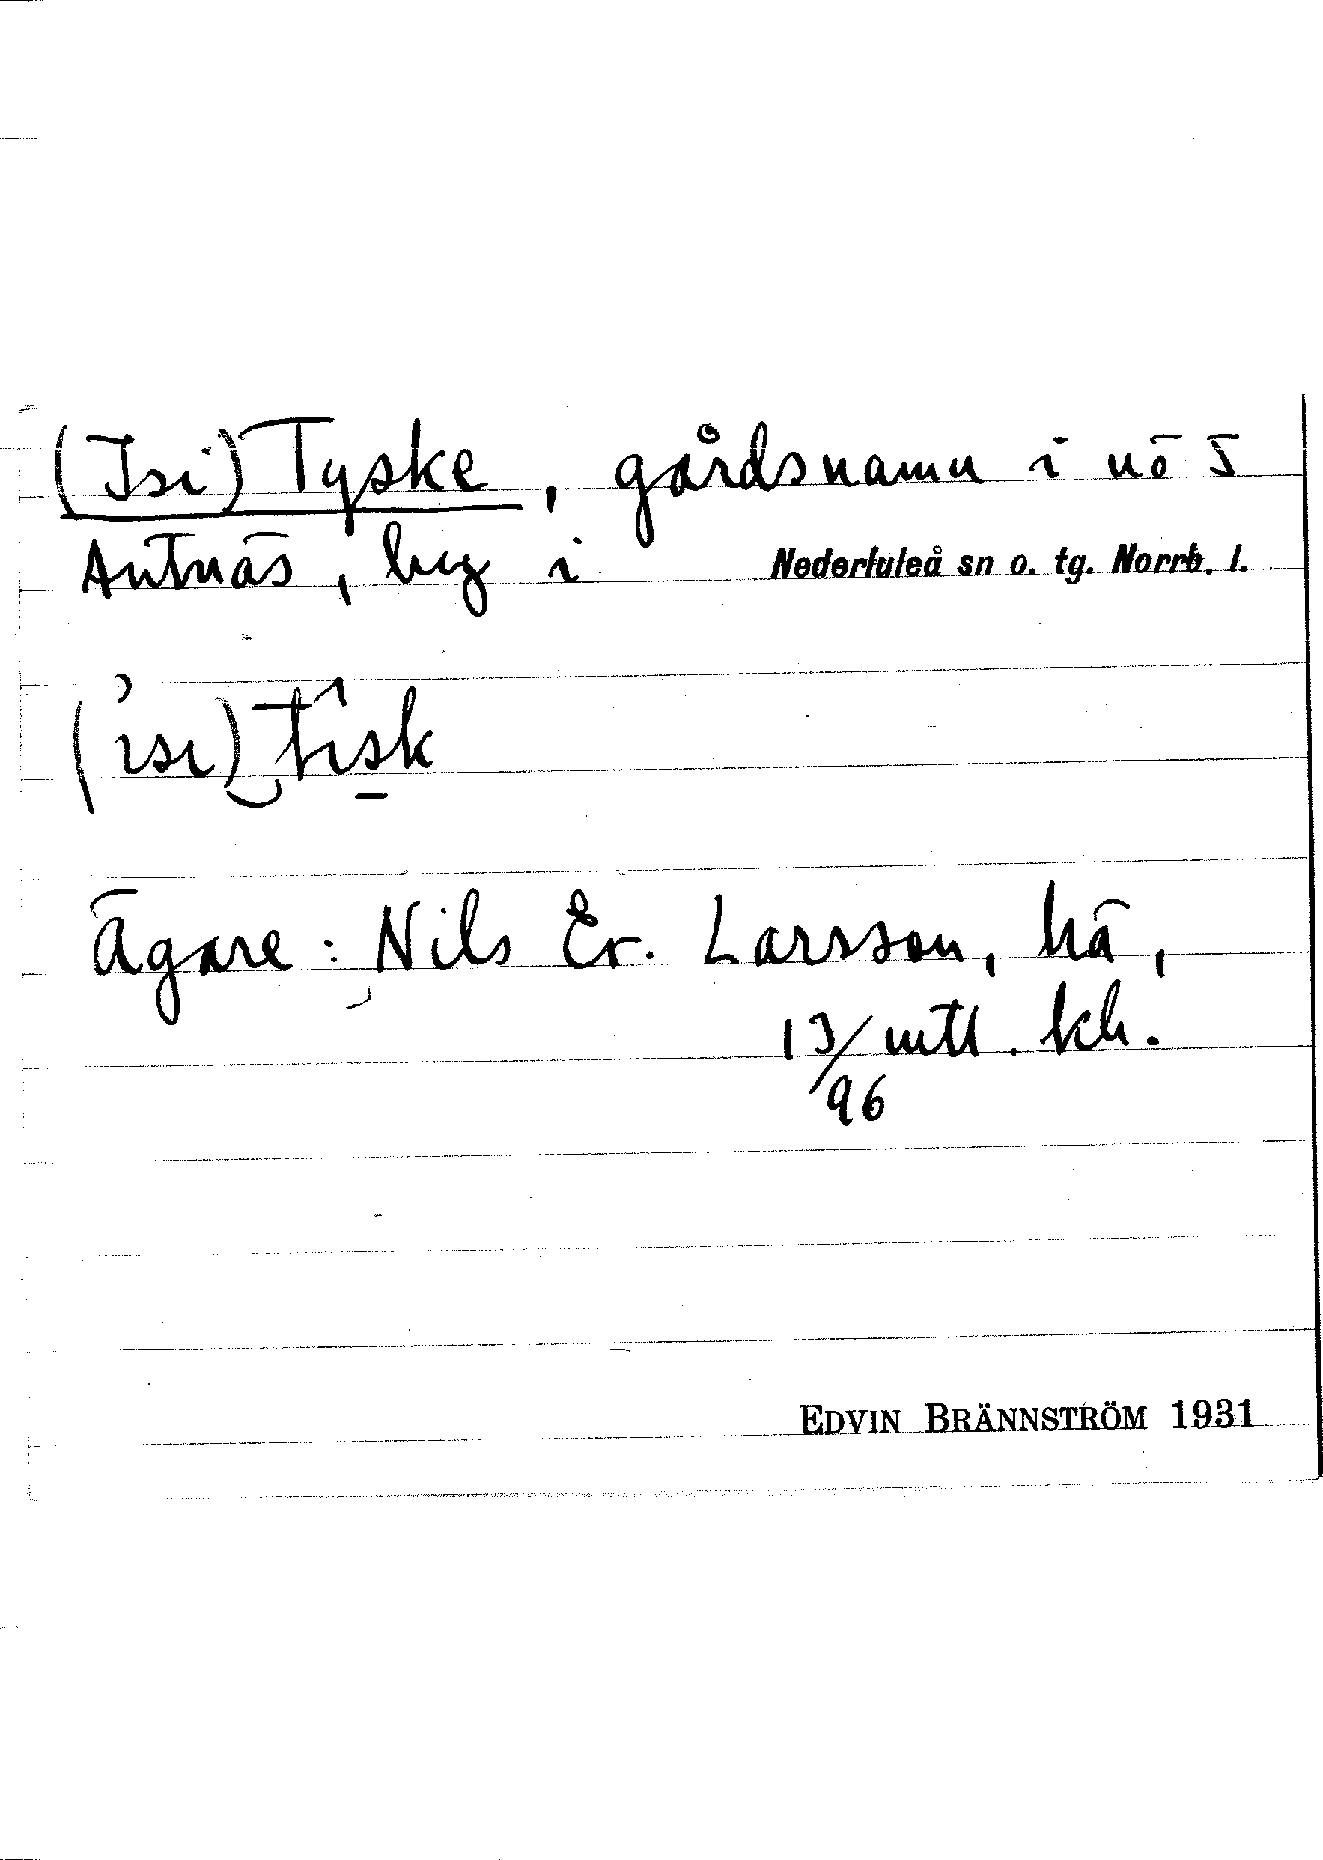 (Isi) Tyske, gårdsnamn i nö 5
Antnäs, by i Nederluleå sn o. tg. Norrb. l.
(ìsi) tîsk
Ägare: Nils Er. Larsson, hä,
13/96 mtl. kh.
EDVIN BRÄNNSTRÖM 1931